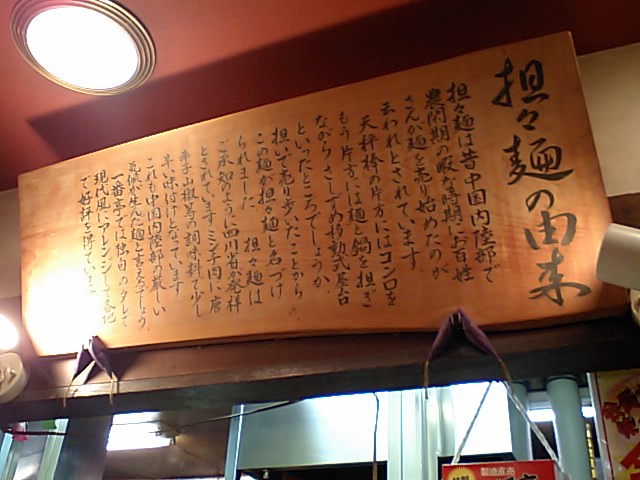 担々麺の由来
担々麺は昔中国内陸部で
農閑期の暇な時期にお百姓
さんが麺を売り始めたのが
云われとされています
天秤棒の片方にはコンロを
もう片方には麺と鍋を担ぎ
ながらさしずめ移動式屋台
といったところでしょうか
担いで売り歩いたことから
この麺が担々麺と名づけ
られました 担々麺は
ご承知のように四川省が発祥
とされています ミンチ肉に唐
辛子山椒等の調味料で少し
辛い味付けとなっています
これも中国内陸部の厳しい
気候が生んだ麺と言えるでしょう
一番亭では独自のタレで
現代風にアレンジして各地
で好評を得ています
製造直売